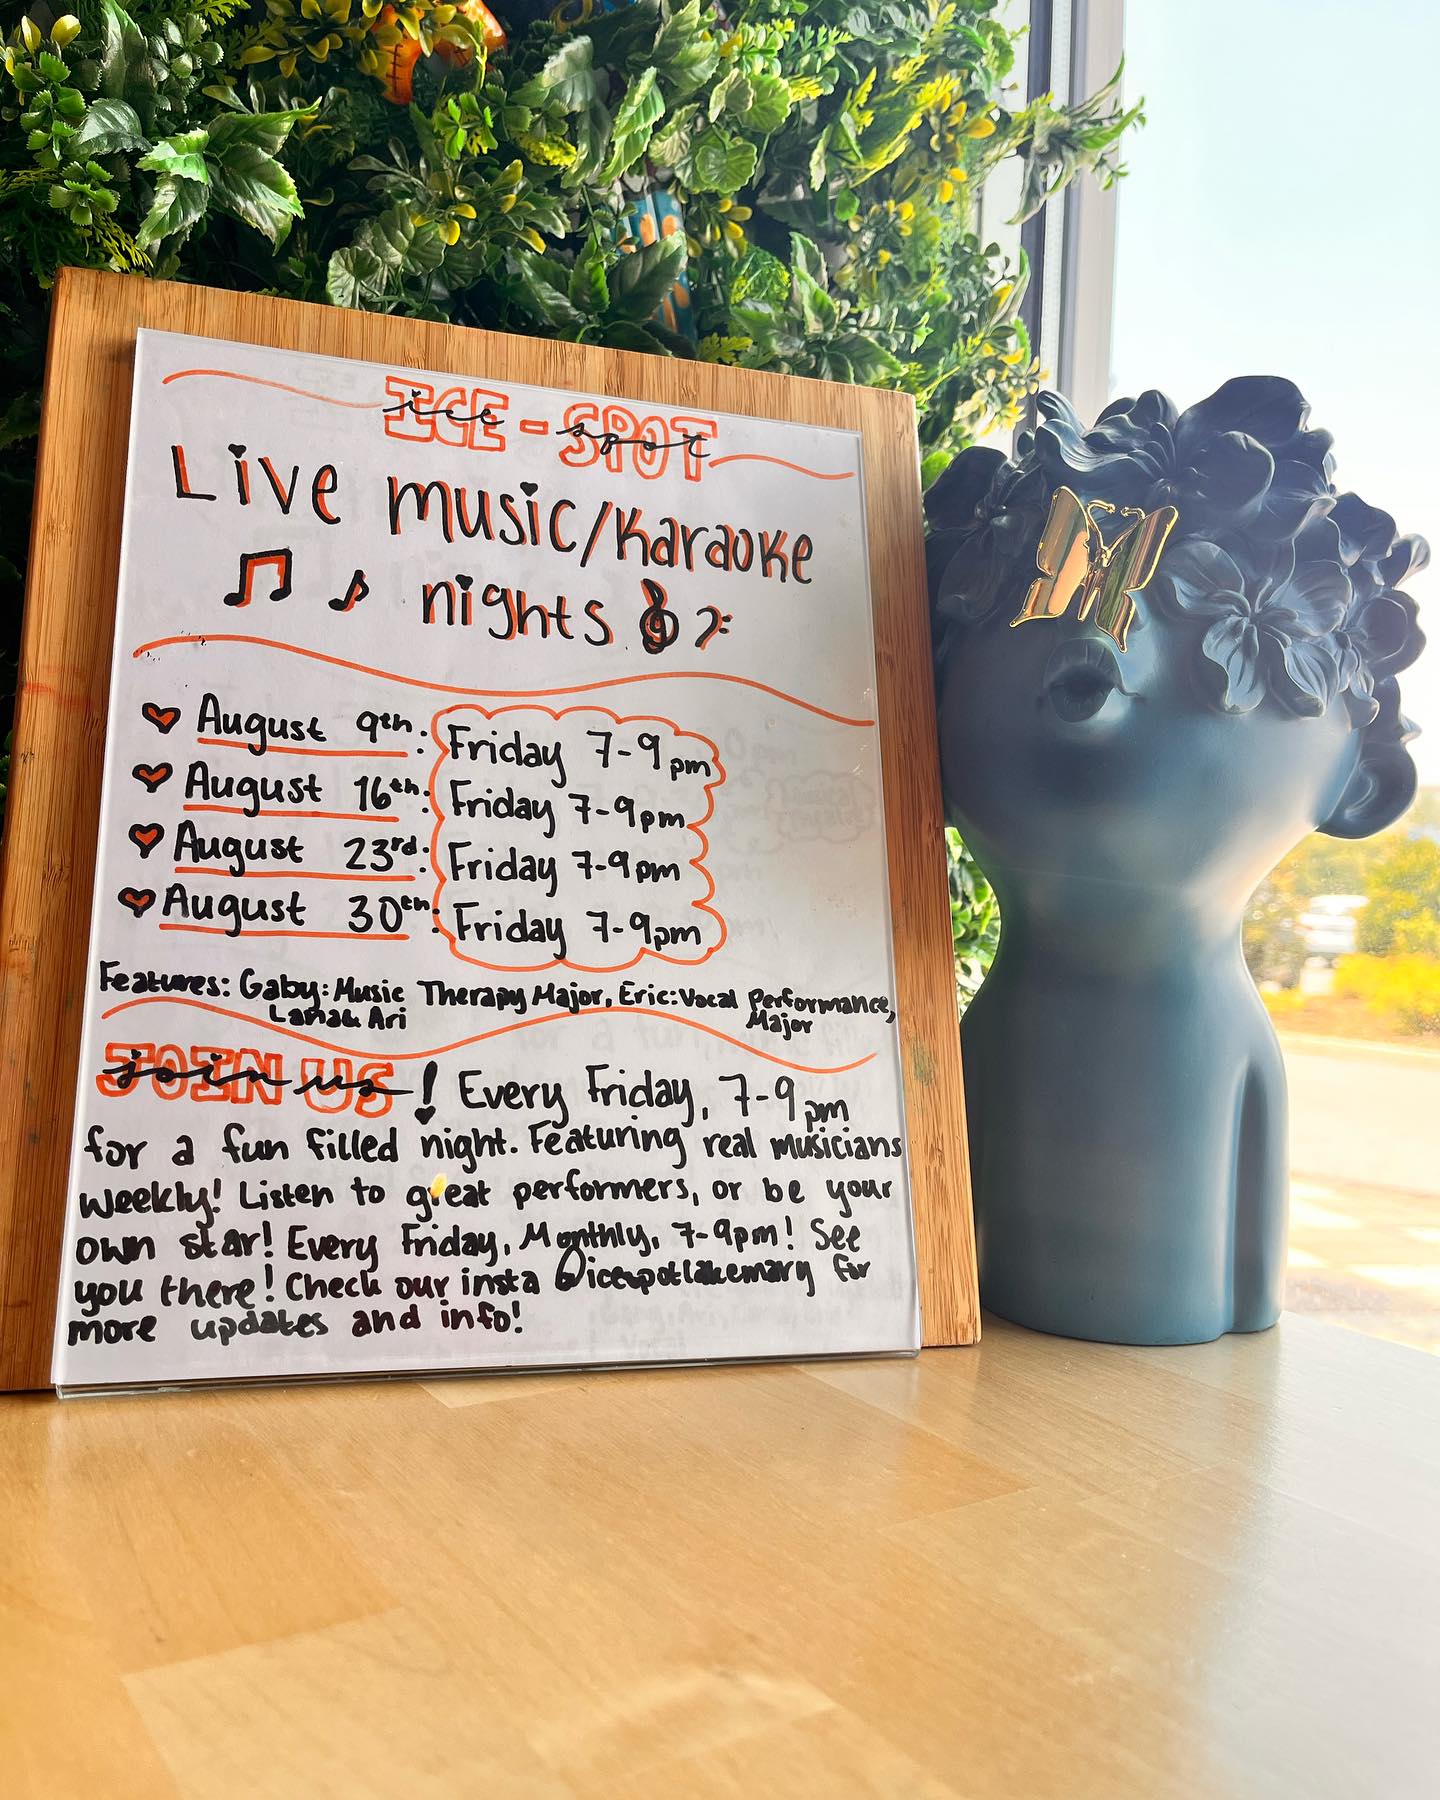 ICE-SPOT
ice spot
Live music/Karaoke
nights
August 9th: Friday 7-9pm
August 16th: Friday 7-9pm
August 23rd: Friday 7-9pm
August 30th: Friday 7-9pm
Features: Gaby: Music Therapy Major, Eric: Vocal Performance,
Lana& Ari Major
JOIN US
join us! Every Friday, 7-9pm
for a fun filled night. Featuring real musicians
weekly! Listen to great performers, or be your
own star! Every Friday, Monthly, 7-9pm! See
you there! Check our insta @icespotlakemary for
more updates and info!